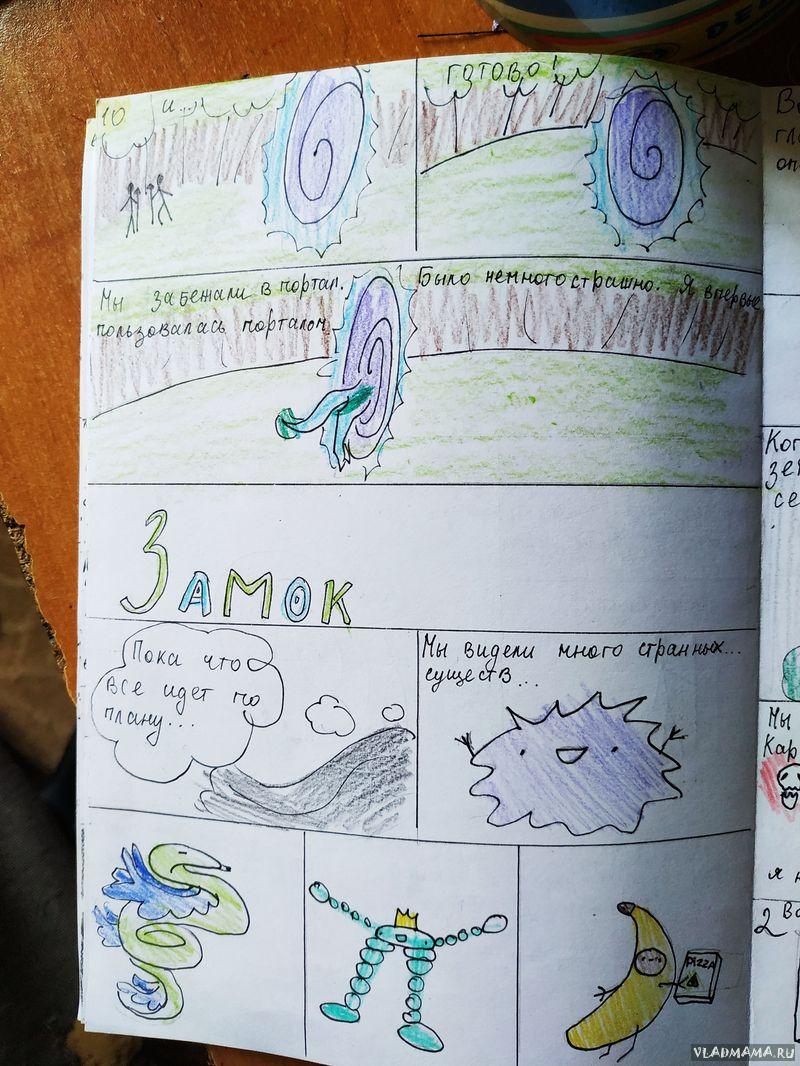 10
и...
ГОТОВО!
Мы забежали в портал.
пользовалась порталом
Было немного страшно. Я впервые
Замок
Пока что
все идет по
плану...
Мы видели много странных...
существ...
PIZZA
Мы
Кар
я н
2
VLADMAMA.RU